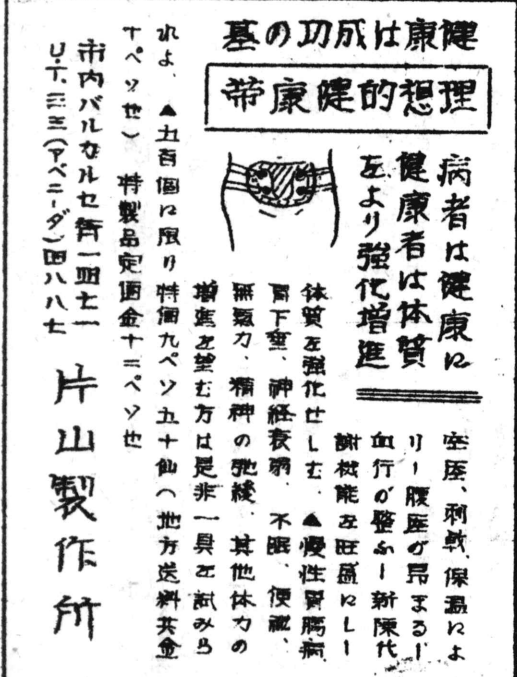 健康は成功の基
理想的健康帯
病者は健康に
健康者は体質
をより強化増進
空圧、刺戟、保温によ
リー腹圧が昂まるー
血行が整ふー新陳代
謝機能を旺盛にしー
体質を強化せしむ、▲慢性胃腸病、
胃下垂、神経衰弱、不眠、便秘、
無気力、精神の弛緩、其他体力の
増進を望む方は是非一具を試みら
れよ、▲五百個に限り特価九ペソ五十仙(地方送料共金
十ペソ也) 特製品定価金十二ペソ也
市内バルカルセ街一四七一
U.T.三三(アベニーダ)四八八七
片山製作所